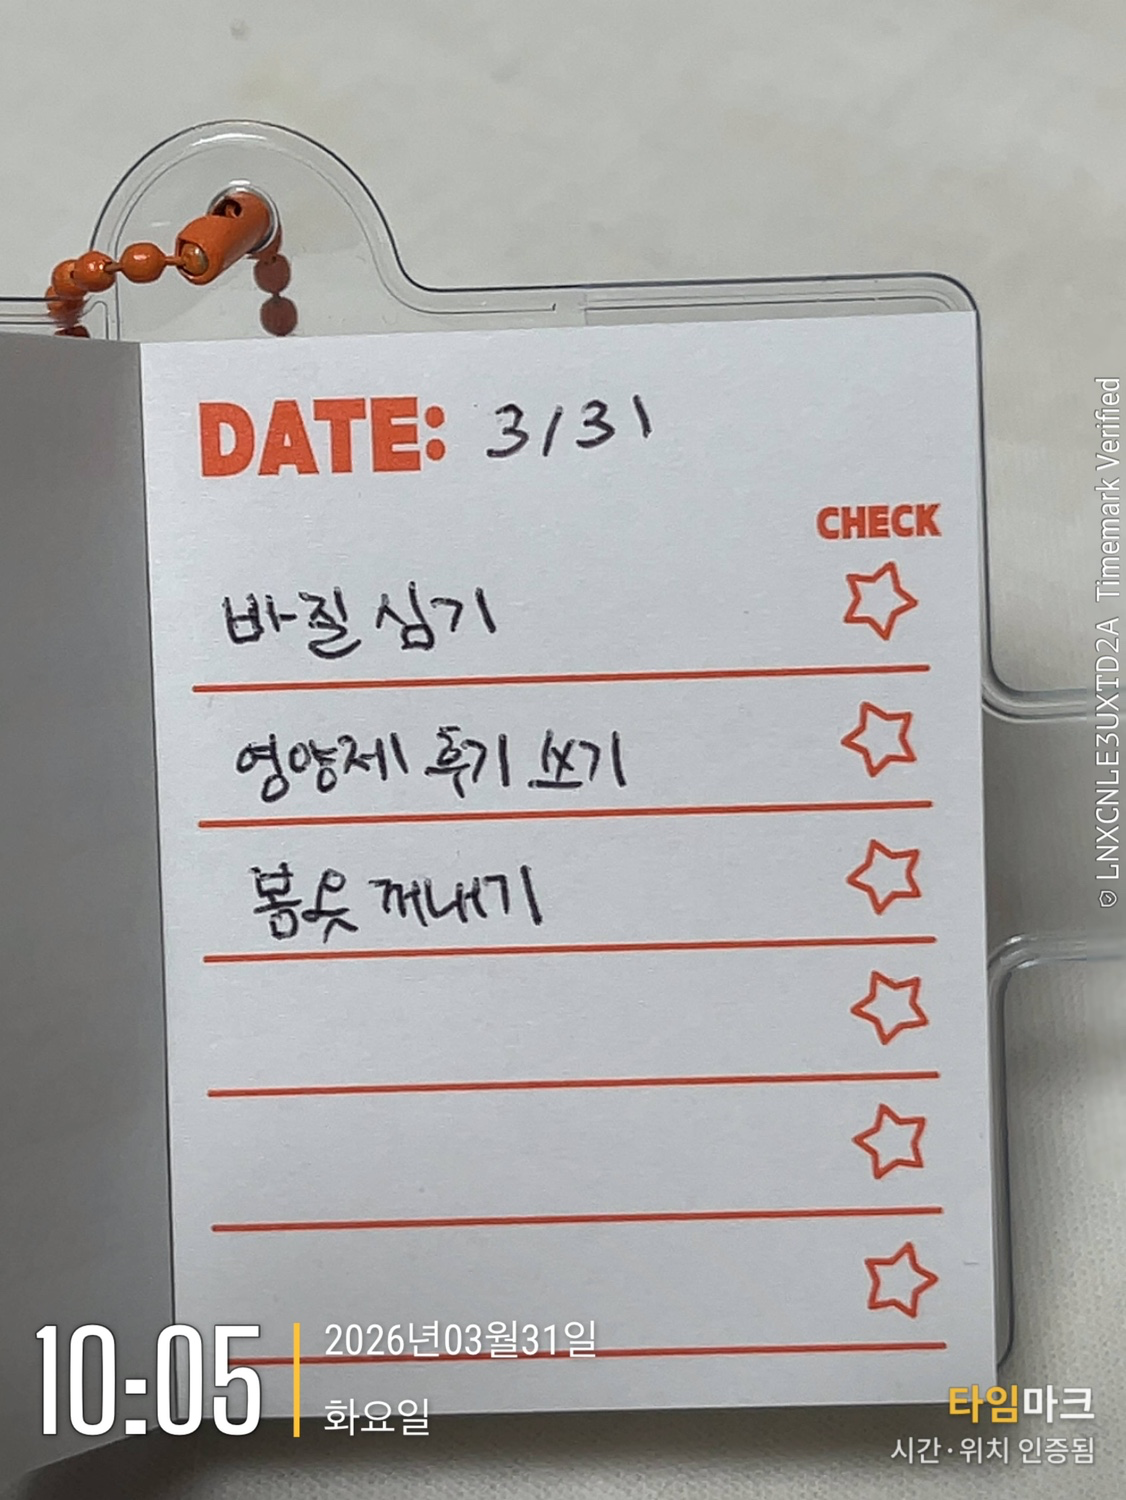 DATE: 3/31
CHECK
바질 심기
영양제 후기 쓰기
봄옷 꺼내기
10:05
2026년03월31일
화요일
타임마크
시간·위치 인증됨
LNXCNLE3UXTD2A Timemark Verified